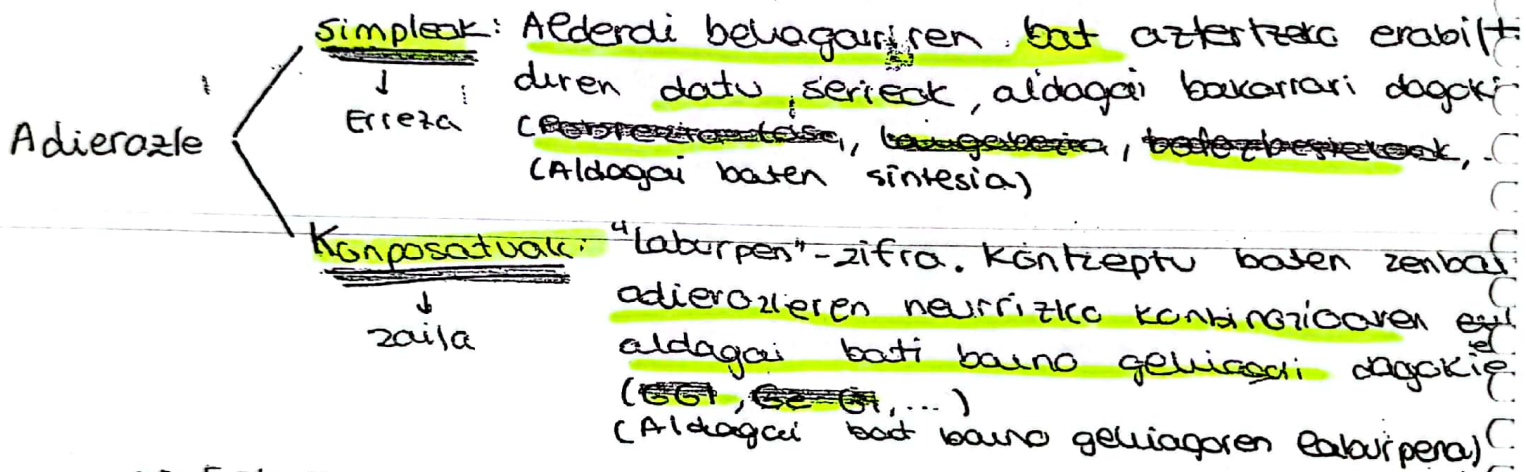 Simpleak: Alderdi behagarriren bat aztertzeko erabilt
↓ diren datu serieak, aldagai bakarrari dagoki
Erreza
Adierazle
(Aldagai baten sintesia)
Konposatuak: "Laburpen"-zifra. Kontzeptu baten zenbat
↓ adierazleren neurrizko konbinazioaren
zaila aldagai bati baino gehiagori dagokie
(GGI, ...)
(Aldagai bat baino gehiagoren laburpena)